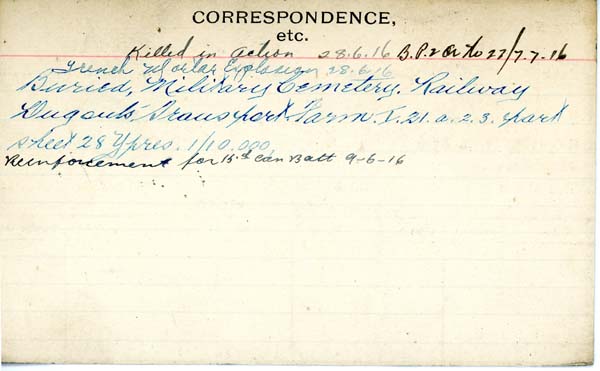 CORRESPONDENCE,
etc.
Killed in action 28.6.16 B.P.2 Or No 27/7.7.16
Trench Mortar Explosion 28.6.16
Buried, Military Cemetery. Railway
Dugouts Transport Farm. I.21.a.2.3. part
sheet 28 Ypres. 1/10.000.
Reinforcement for 15th Can Batt 9-6-16